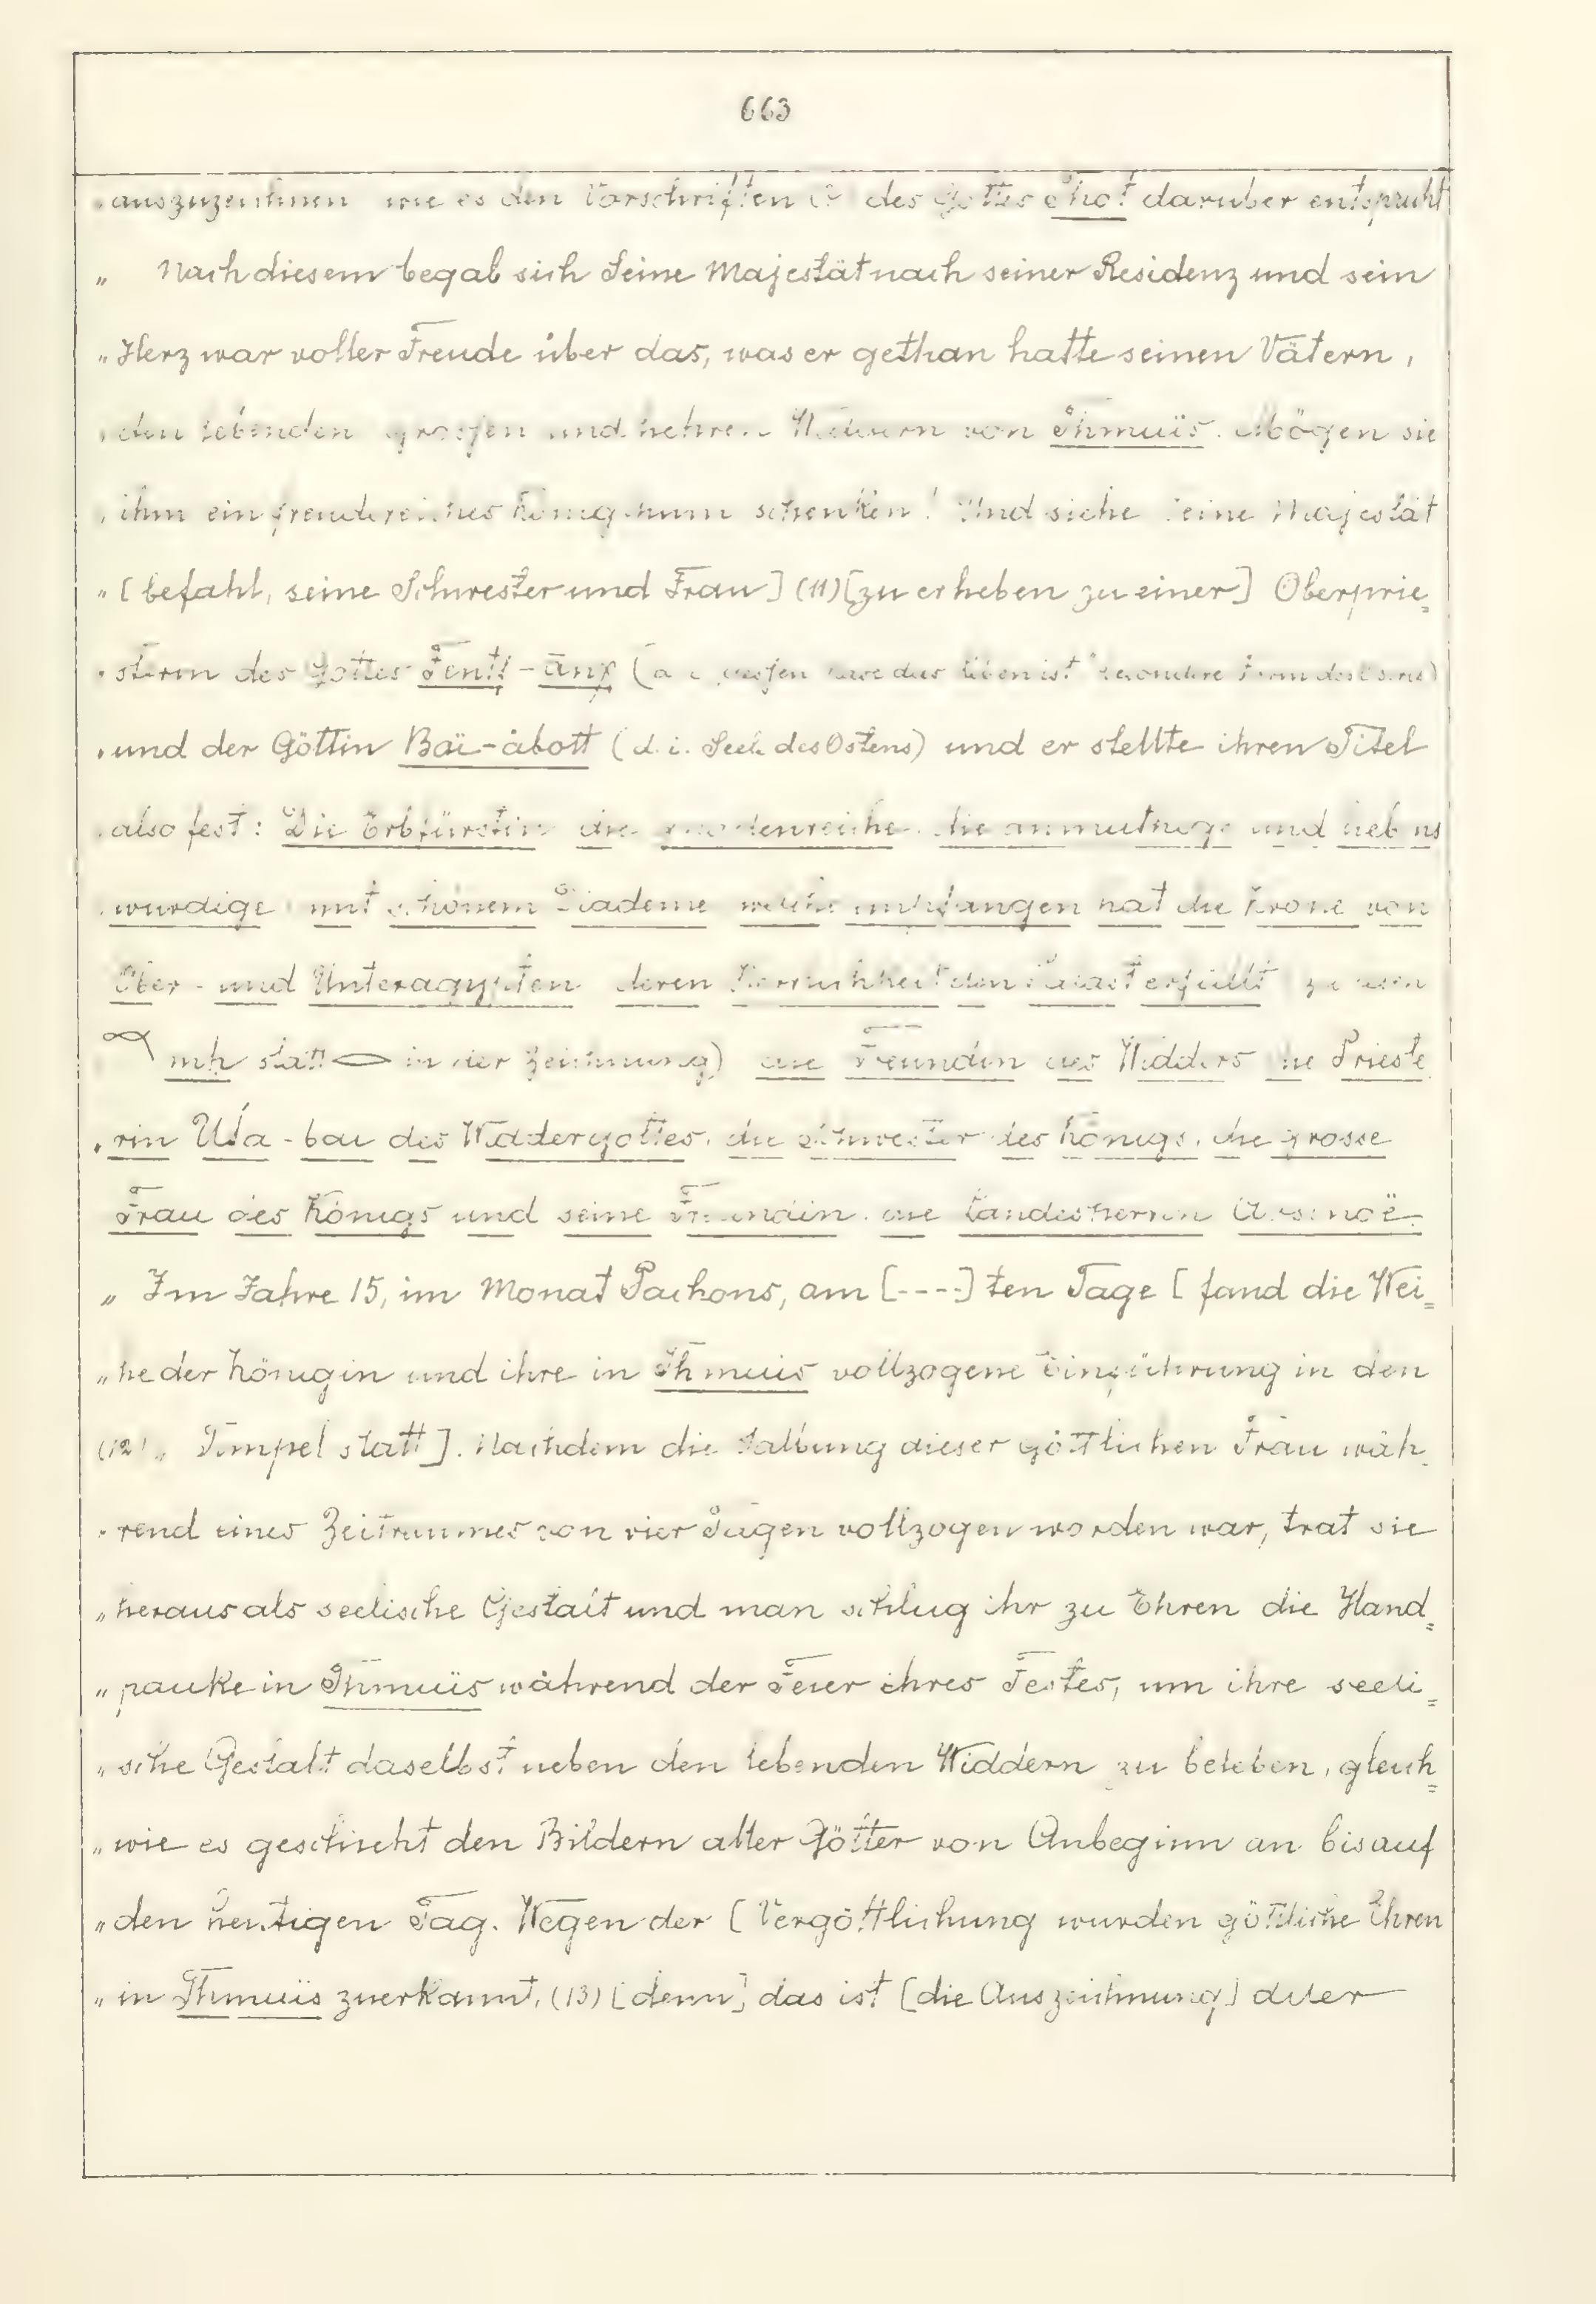 663
„ auszuzeichnen wie es den Vorschriften des Gottes Thot darüber entspricht
„ Nach diesem begab sich Seine Majestät nach seiner Residenz und sein
„ Herz war voller Freude über das, was er gethan hatte seinen Vätern,
„ den lebenden grossen und hehren Widdern von Thmuïs. Mögen sie
„ ihm ein freudereiches Königthum schenken! Und siehe Seine Majestät
„ [befahl, seine Schwester und Frau] (11) [zu erheben zu einer] Oberprie=
„ sterin des Gottes Tentt-ānχ (d. i. dessen das Leben ist besondere Form des Osiris)
„ und der Göttin Baï-ábott (d. i. Seele des Ostens) und er stellte ihren Titel
„ also fest: Die Erbfürstin die gnadenreiche, die anmuthige und liebens
„ würdige mit schönem Diademe welche empfangen hat die Krone von
Ober- und Unteragypten deren Herrlichkeit den Palast erfüllt
mh statt in der Zeichnung) die Freundin des Widders die Prieste
„ rin Uta-bai des Widdergottes, die Schwester des Königs, die grosse
Frau des Königs und seine Freundin, die Landesherrin Arsinoë.
„ Im Jahre 15, im Monat Pachons, am [----]ten Tage [fand die Wei=
„ he der Königin und ihre in Thmuïs vollzogene Einführung in den
(12) „ Tempel statt]. Nachdem die Salbung dieser göttlichen Frau wäh=
„ rend eines Zeitraumes von vier Tagen vollzogen worden war, trat sie
„ heraus als seelische Gestalt und man schlug ihr zu Ehren die Hand=
„ pauke in Thmuïs während der Feier ihres Festes, um ihre seeli=
„ sche Gestalt daselbst neben den lebenden Widdern zu beleben, gleich=
„ wie es geschieht den Bildern aller Götter von Anbeginn an bis auf
„ den heutigen Tag. Wegen der [Vergöttlichung wurden göttliche Ehren
„ in Thmuïs zuerkannt, (13) [denn] das ist [die Auszeichnung] aller